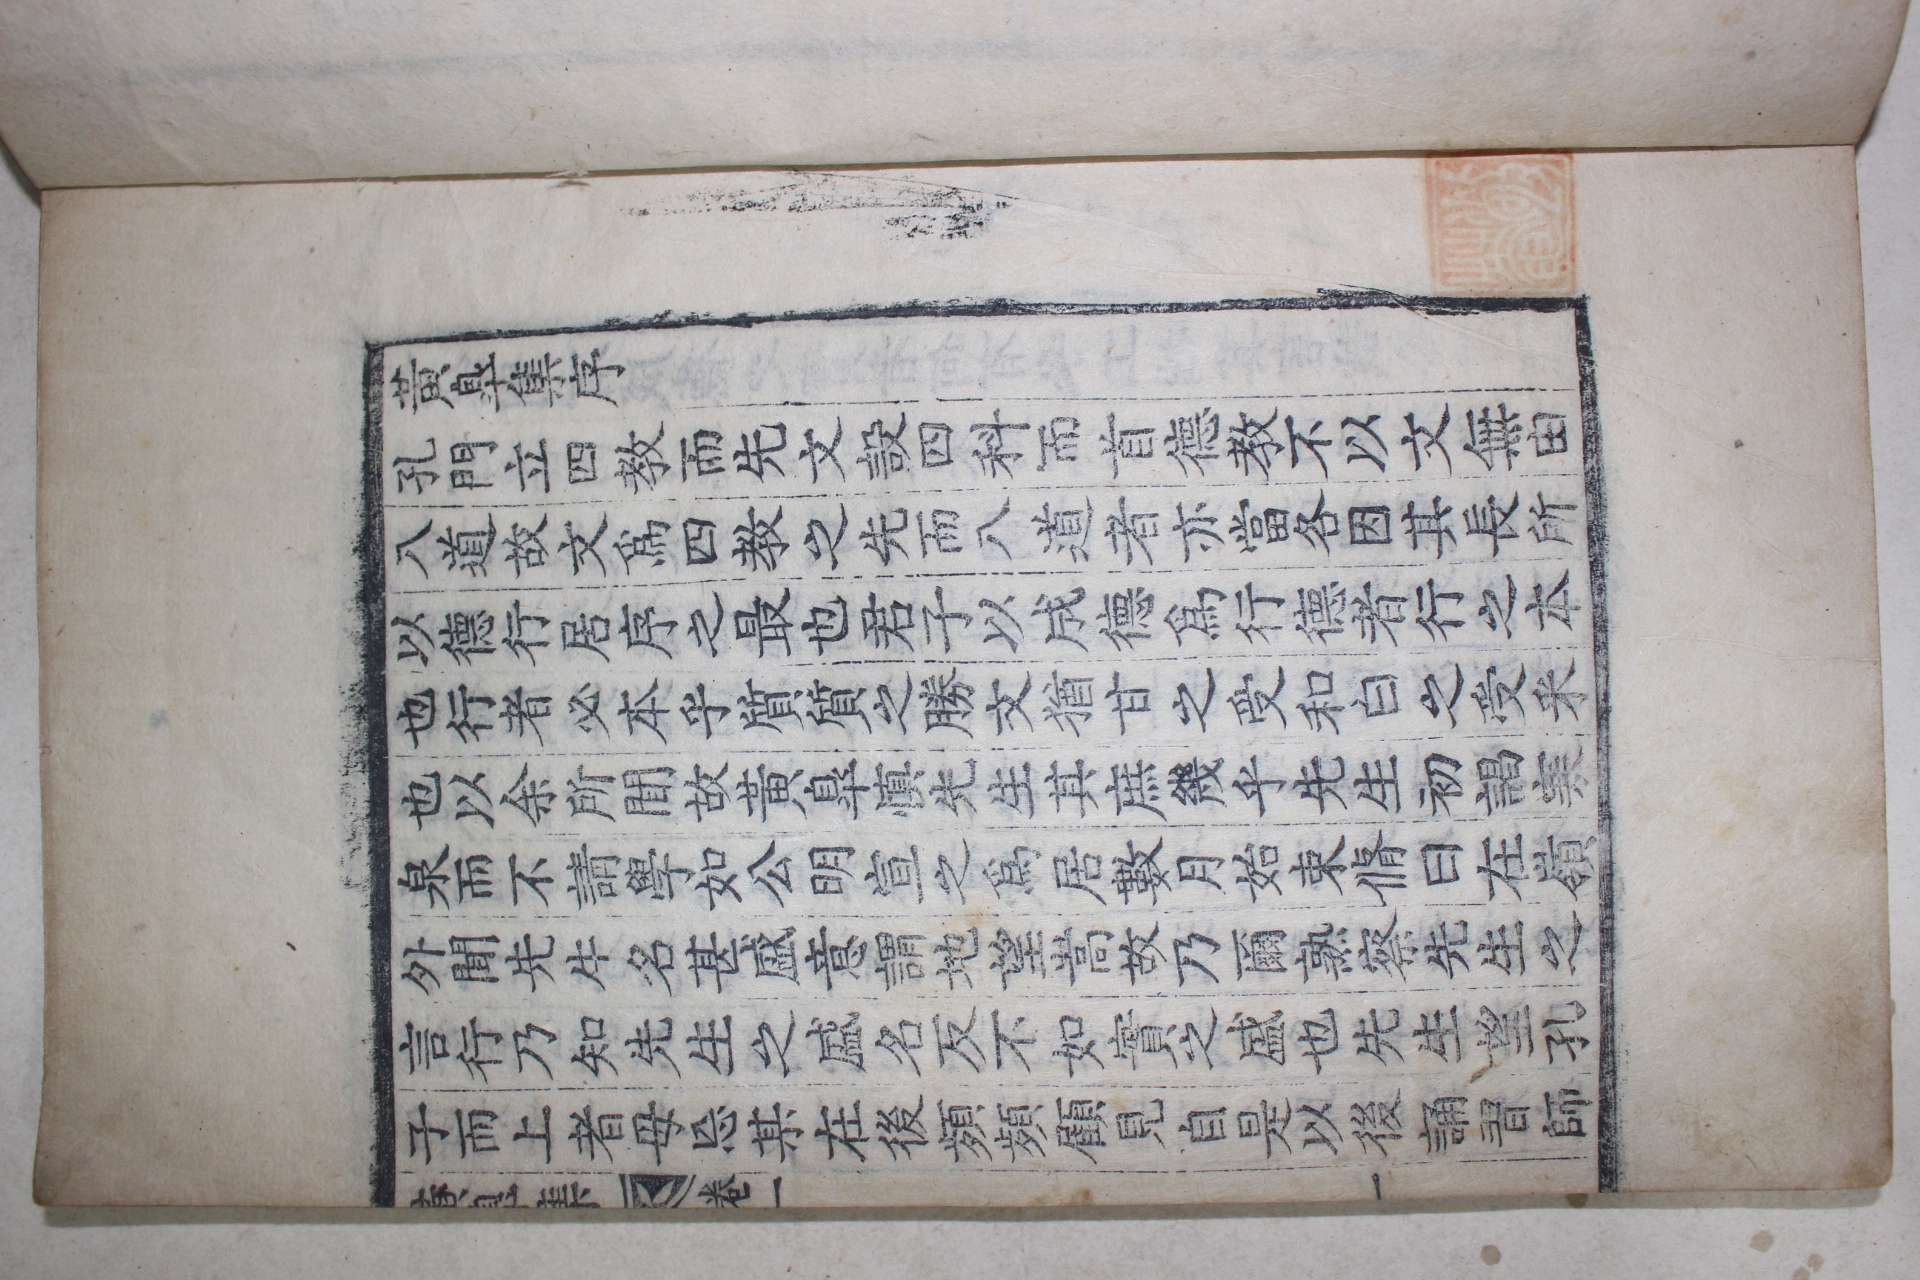 黃臯集序
孔門立四教而先文設四科而首德教不以文無由
八道故文爲四教之先而八道者亦當各因其長所
以德行居序之最也君子以成德爲行德者行之本
也行者必本乎質質之勝文猶甘之受和白之受采
也以余所聞故黃臯愼先生其庶幾乎先生初謁寒
泉而不請學如公明宣之爲居數月始束脩曰在嶺
外聞先生名甚盛意謂地望嵩故乃爾熟察先生之
言行乃知先生之盛名反不如實之盛也先生望孔
子而上者毋忘某在後頻頻顧見自是以後誦習師
黃臯集 卷一 一